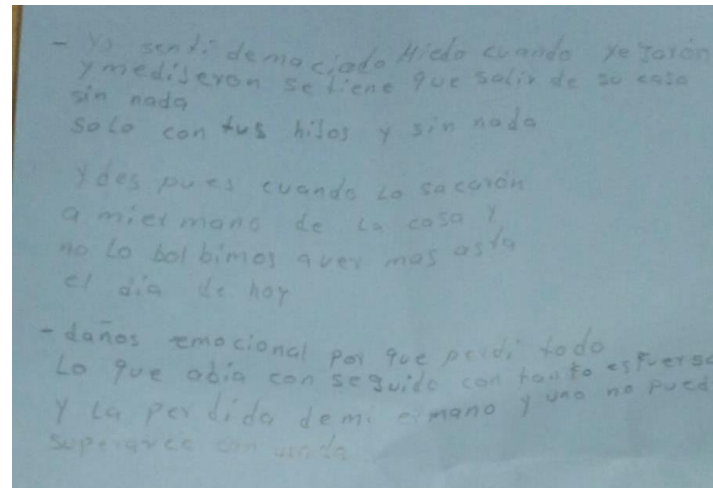 - Yo senti demaciado Miedo cuando yegarón
y mediJeron se tiene que salir de su casa
sin nada
solo con tus hiJos y sin nada
y des pues cuando Lo sacarón
a miermano de La casa y
no Lo bolbimos aver mas asta
el dia de hoy
- daños emocional por que perdi todo
Lo que abia con seguido con tanto esfuerso
Y La perdida demi ermano y uno no pued
superarce con nada